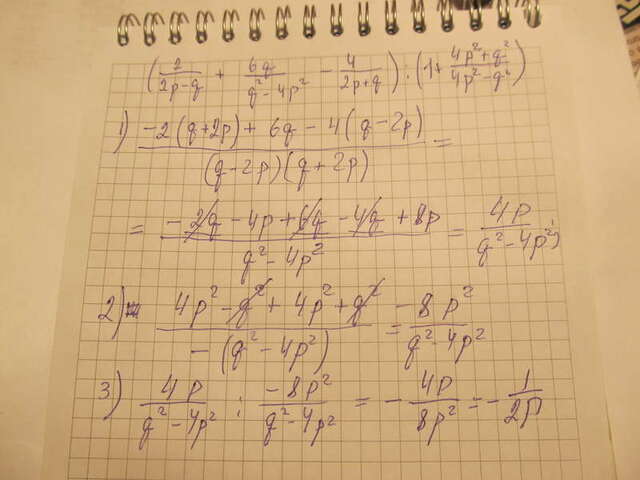 (2/(2p-q) + 6q/(q²-4p²) - 4/(2p+q)) : (1+ (4p²+q²)/(4p²-q²))
1) (-2(q+2p)+ 6q - 4(q-2p))/((q-2p)(q+2p)) =
= (-2q - 4p + 6q - 4q + 8p)/(q²-4p²) = 4p/(q²-4p²);
2) (4p²-q²+ 4p²+q²)/(-(q²-4p²)) = -8p²/(q²-4p²)
3) 4p/(q²-4p²) : -8p²/(q²-4p²) = - 4p/8p² = - 1/2p